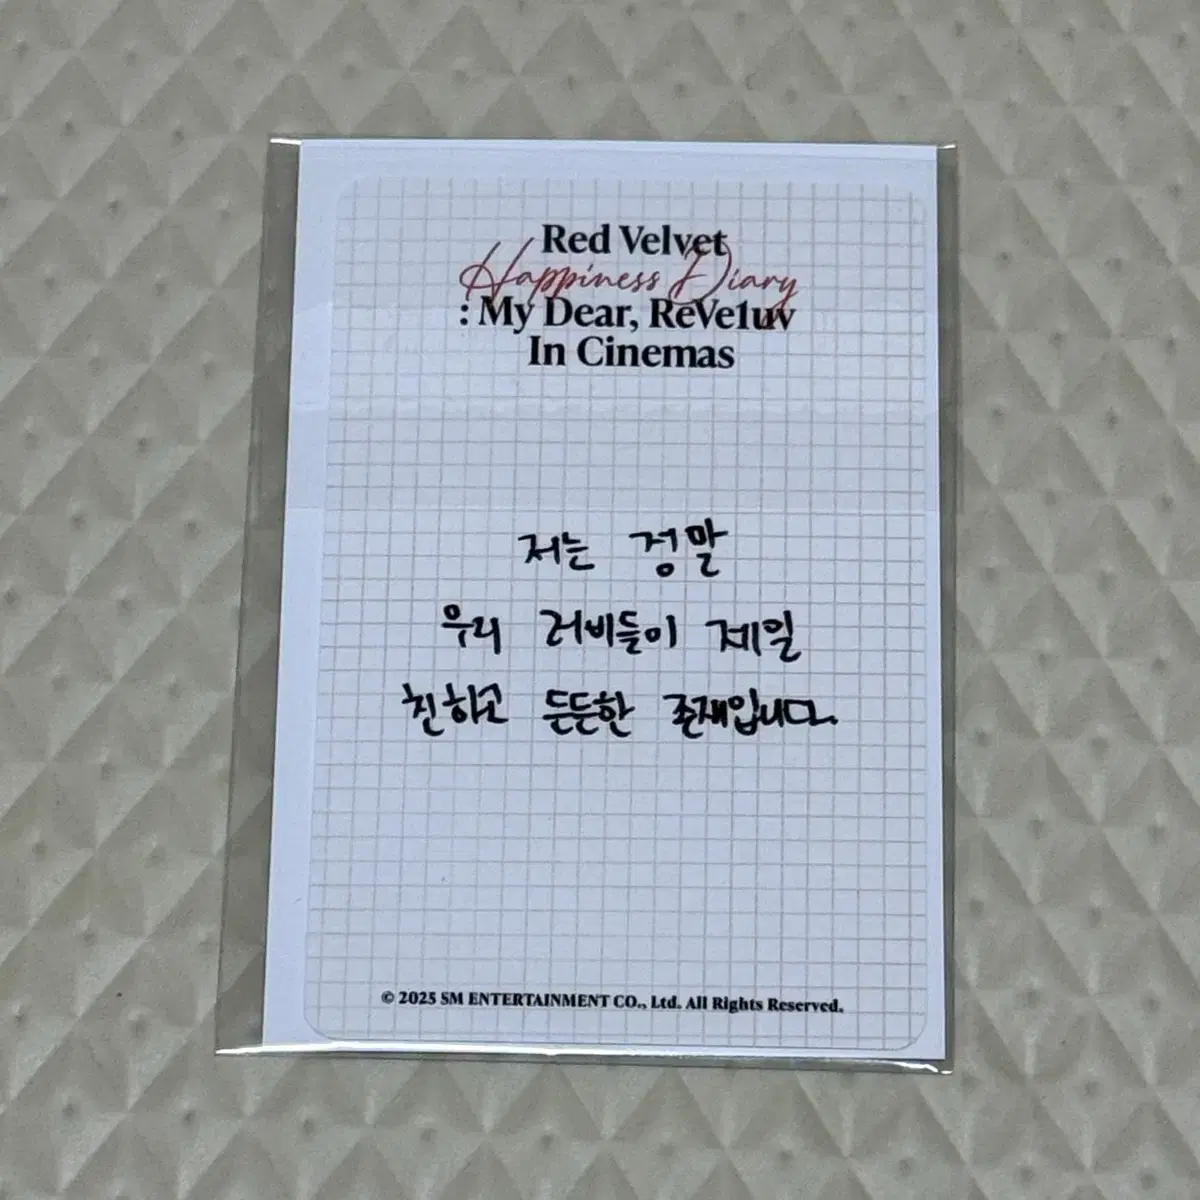 Red Velvet
Happiness Diary
: My Dear, ReVe1uv
In Cinemas
저는 정말
우리 러비들이 제일
친하고 든든한 존재입니다.
© 2025 SM ENTERTAINMENT CO., Ltd. All Rights Reserved.